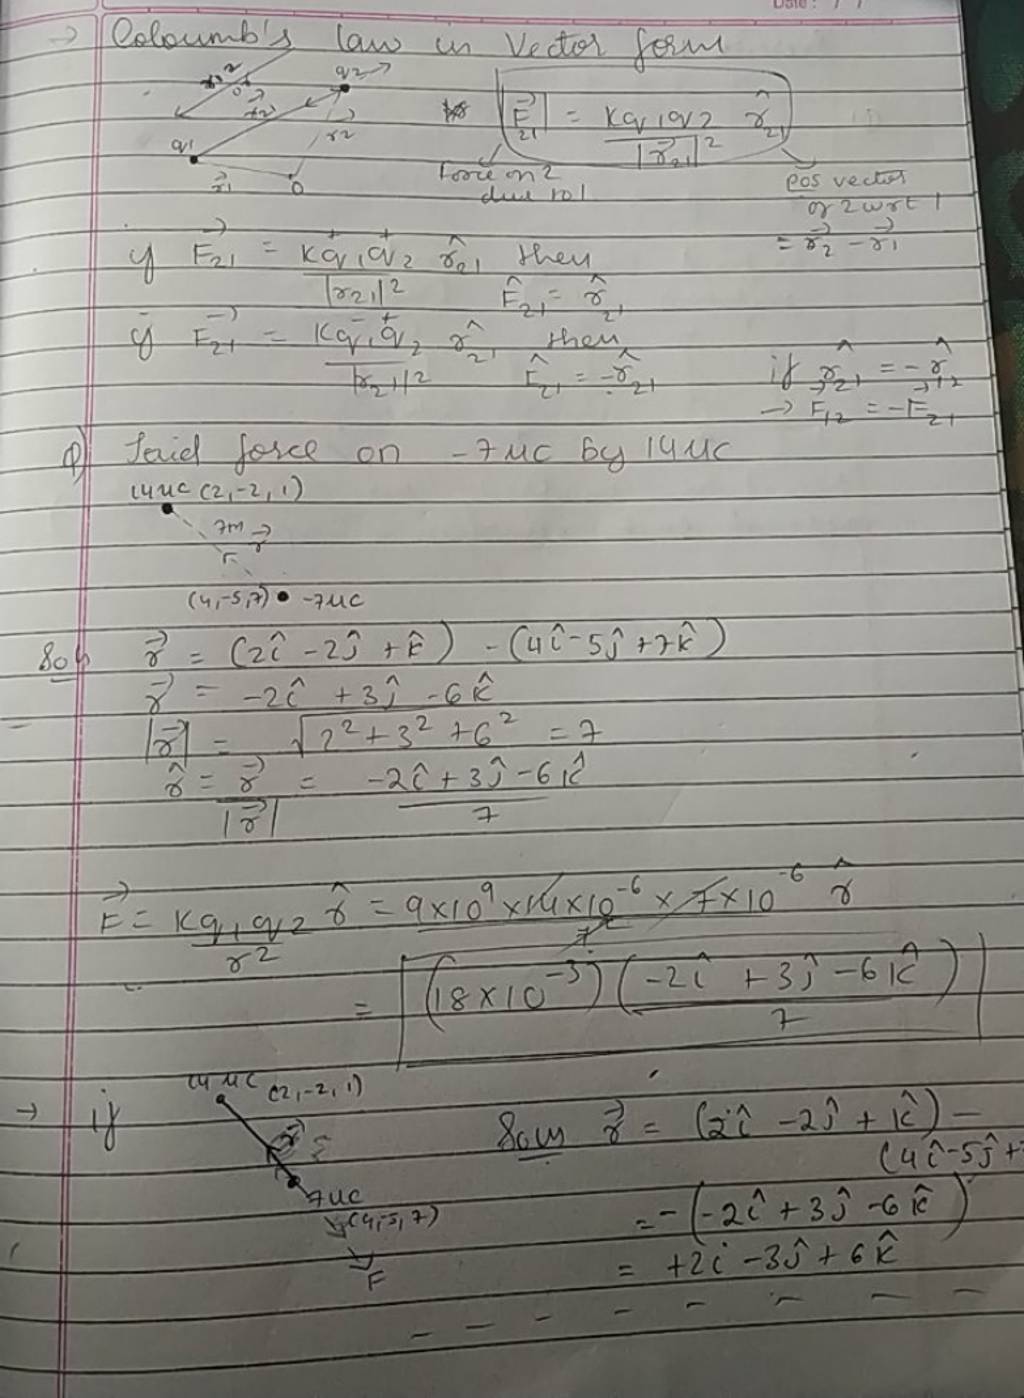 Date: / /
→ Coloumb's law in Vector form
q2
r2
q1
r⃗1
O
|F⃗21| = Kq1q2 r̂21
|r⃗21|²
Force on 2
due to 1
pos vector
of 2 wrt 1
= r⃗2 - r⃗1
if F⃗21 = Kq1⁺q2⁺ r̂21 then
|r21|² F̂21 = r̂21
if F⃗21 = Kq1⁻q2⁺ r̂21 then
|r21|² F̂21 = -r̂21
if r̂21 = -r̂12
→ F⃗12 = -F⃗21
Q) Find force on -7μc by 14μc
14μc (2,-2,1)
7m r⃗
F
(4,-5,7) • -7μc
Soln r⃗ = (2î - 2ĵ + k̂) - (4î - 5ĵ + 7k̂)
r⃗ = -2î + 3ĵ - 6k̂
|r⃗| = √2² + 3² + 6² = 7
r̂ = r⃗ = -2î + 3ĵ - 6k̂
|r⃗| 7
F⃗ = Kq1q2 r̂ = 9×10⁹ × 14×10⁻⁶ × 7×10⁻⁶ r̂
r² 7²
= (18×10⁻³) (-2î + 3ĵ - 6k̂)
7
→ if
14μc (2,-2,1)
r⃗
7μc
(4,-5,7)
F
Soln r⃗ = (2î - 2ĵ + k̂) -
(4î - 5ĵ +
= -(-2î + 3ĵ - 6k̂)
= +2î - 3ĵ + 6k̂